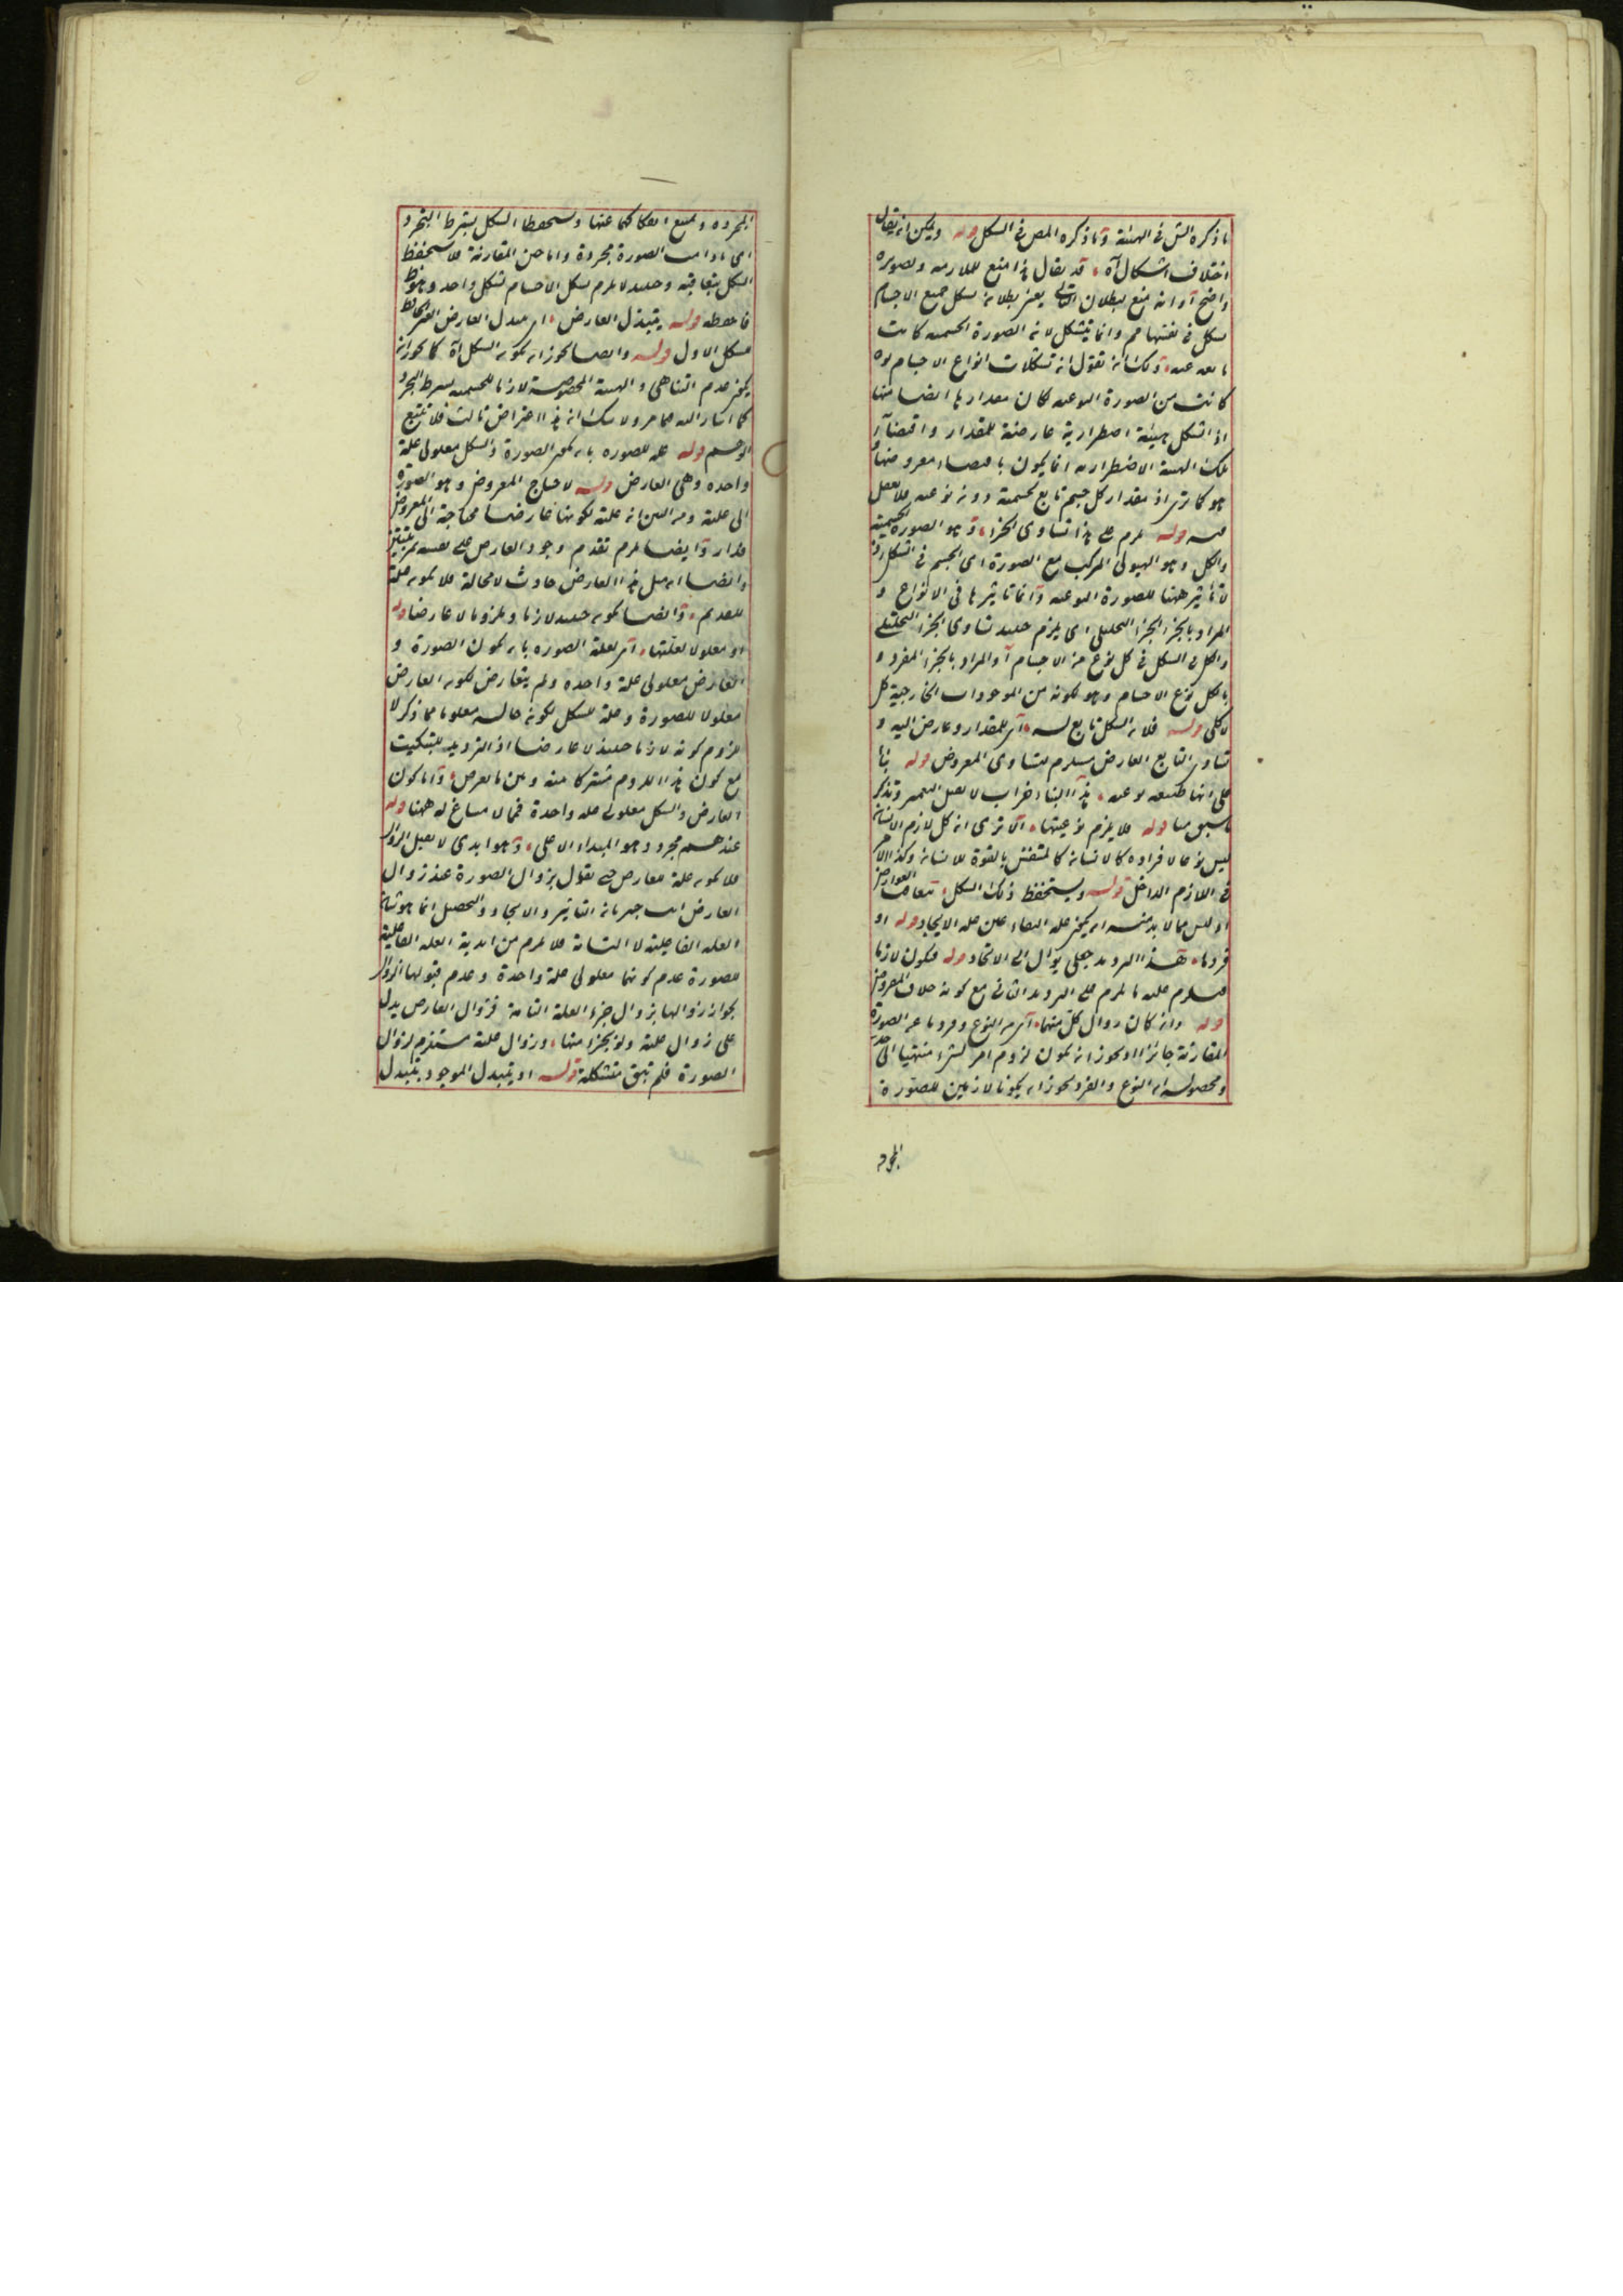 ما ذكره الش في الهيئة وما ذكره المص في الشكل قوله ويمكن ان يقال
اختلاف اشكال آه قد يقال هذا منع للملازمة وتصويره
واضح آو انه منع لبطلان التالي يعني بطلانه شكل جميع الاجسام
شكل في نفسها مم وانما يتشكل لانه الصورة الجسمية كانت
ولك ان تقول انه تشكلات انواع الاجسام لو
كانت من الصورة النوعية لكان مقدارها ايضا منها
اذ الشكل هيئة اضطرارية عارضة للمقدار واقتضاء
تلك الهيئة الاضطرارية انما يكون باقتضاء معروضها
هو كما ترى اذ مقدار كل جسم تابع لجسمية دونه نوعية
قوله يلزم على هذا تساوى الجزء وهو الصورة الجسمية
والكل وهو الهيولى المركب مع الصورة اى الجسم في الشكل اذ
لا تأثير ههنا للصورة النوعية وانما تأثيرها في الانواع و
المراد بالجزء الجزء التحليلى اى يلزم حينئذ تساوى الجزء التحليلى
والكل في الشكل في كل نوع من الاجسام آو المراد بالجزء المفرد و
بالكل نوع الاجسام وهو لكونه من الموجودات الخارجية كل
لا كلى قوله فلانه الشكل تابع له اى للمقدار وعارض اليه و
تساوى التابع العارض يستلزم لتساوى المعروض قوله بناء
على انها طبيعة نوعية هذا البناء خراب لا يقبل التعمير وتذكر
ما سبق منا قوله فلا يلزم نوعيتها الا ترى انه كل لازم الانسان
ليس نوعا لافراده كالانسانه كالمتنفس بالقوة للانسانه وكذا الامر
في اللازم الداخل قوله ويستحفظ ذلك الشكل بتعاقب العوارض
اذ ليس مما لا بد منه ان يكون علة البقاء عين علة الايجاد قوله او
فردها هذا الترديد جعلى يؤال الى الاتحاد قوله فيكون لازما
فيلزم عليه ما يلزم على الترديد الثانى مع كونه خلاف المفروض
قوله وانه كان زوال كل منهما اى من النوع وفردها عن الصورة
المقارنة جائزا او يجوز انه يكون لزوم امر لشيء منتهيا الى حد
ومحصوله ان النوع والفرد يجوز ان يكونا لازمين للصورة
المجردة
المجرده ويمتنع انفكاكهما عنها ويستحفظا الشكل بشرط التجرد
اى مادامت الصورة مجردة واما حين المقارنة فلا يستحفظ
الشكل بتعاقبه وحينئذ لا يلزم شكل الاجسام بشكل واحد
فاحفظه قوله يتبدل العارض اى يتبدل العارض
شكل الاول قوله وايضا يجوز ان يكون الشكل آه كما يجوز ان
يكون عدم التناهى والهيئة المخصوصة لازما للجسمية بشرط التجرد
كما اشار اليه فيما مر ولا شك انه هذا اعتراض ثالث فلا تتبع
الوهم قوله علة للصوره بان يكون الصورة والشكل معلولى علة
واحده وهى العارض قوله لاحتياج المعروض وهو الصورة
الى علية ومن البين انه علية لكونها عارضا محتاجة الى المعروض
فدار وايضا يلزم تقدم وجود العارض على نفسه بمرتبتين
وايضا ان مثل هذا العارض حادث لا محالة فلا يكون علة
للقديم وايضا يكون حينئذ لازما وملزوما لا عارضا قوله
او معلولا لعلتها اى لعلة الصوره بان يكون الصورة و
العارض معلولى علة واحده ولم يتعارض لكون العارض
معلولا للصورة وعلة للشكل لكونه حاله معلوما مما ذكر لا
لزوم كونه لازما حينئذ لا عارضا اذ الترديد للتبكيت
مع كون هذا اللزوم مشتركا منه وبين ما تعرض واما كون
العارض والشكل معلولى علة واحدة فمما لا مساغ له ههنا قوله
عندهم مجرد وهو المبداء الاعلى وهو ابدى لا يقبل الزوال
فلا يكون علة لعارض حتى نقول بزوال الصورة عند زوال
العارض التأثير والايجاد والتحصيل انما هو شان
العلة الفاعلية لا التامة فلا يلزم من ابدية العلة الفاعلية
للصورة عدم كونها معلولى علة واحدة وعدم قبولها الزوال
لجواز زوالها بزوال جزء العلة التامة فزوال العارض يدل
على زوال علية ولو بجزء منها وزوال علية مستلزم لزوال
الصورة فلم تبق متشكلة قوله او يتبدل الموجود بتبدل